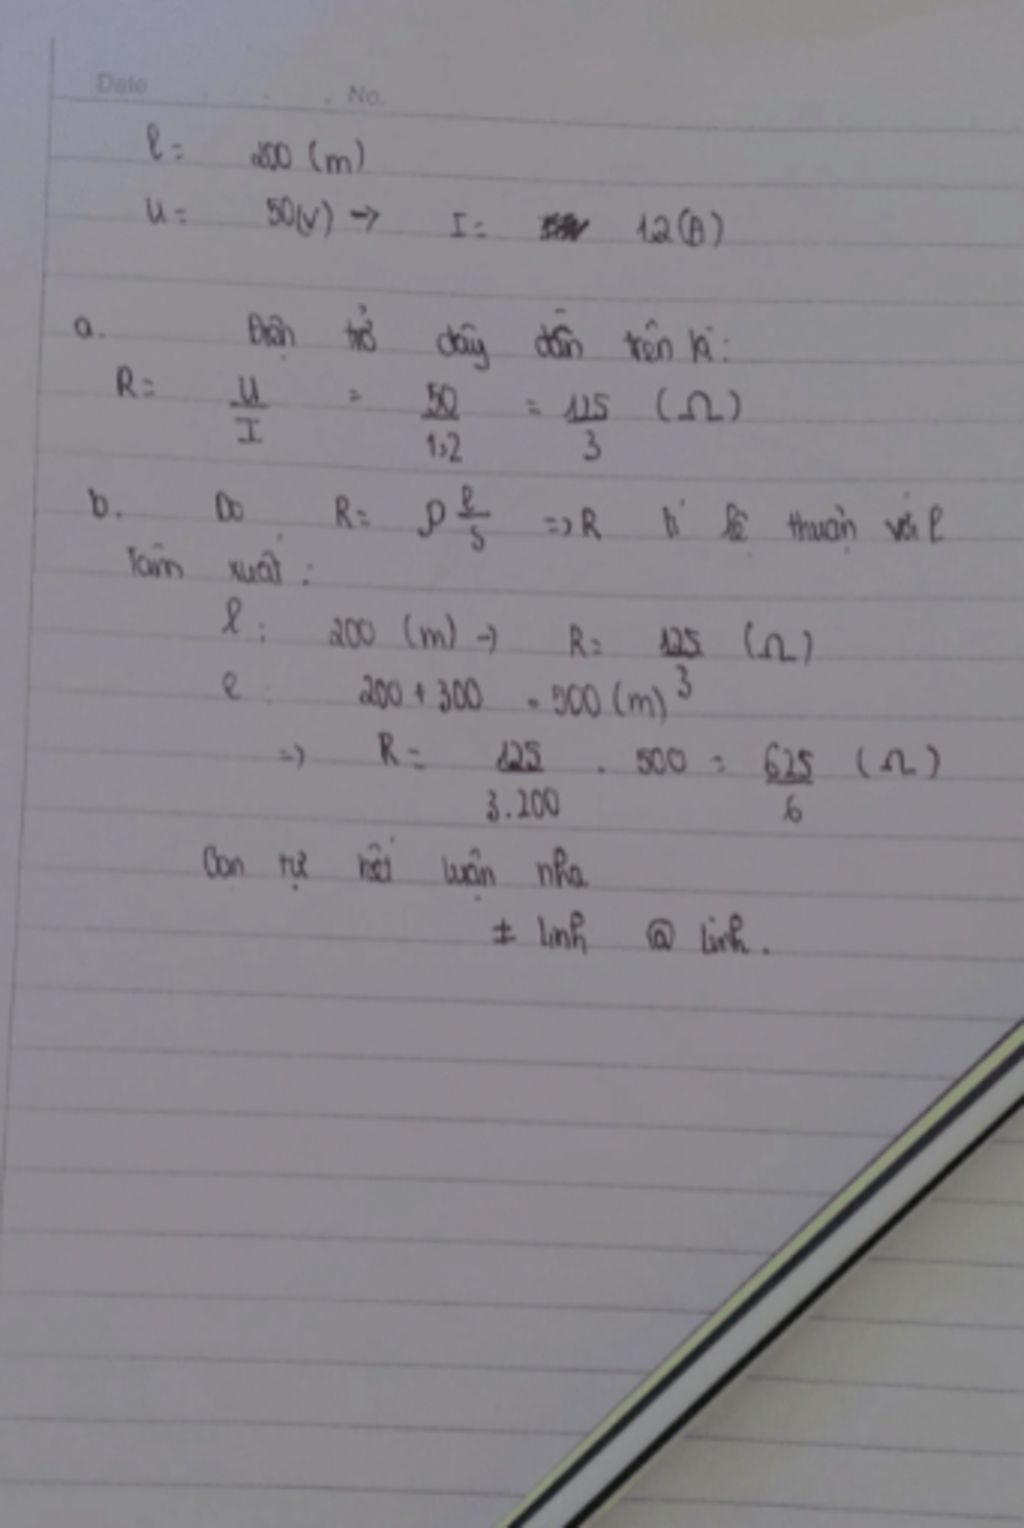 Date No.
l = 200 (m)
U = 50(V) → I = 1.2 (A)
a. Điện trở dây dẫn trên là:
R = U/I = 50/1,2 = 125/3 (Ω)
b. Do R = ρ l/S => R tỉ lệ thuận với l
xuất:
l: 200 (m) → R = 125/3 (Ω)
l: 200 + 300 = 500 (m)
=> R = 125/3.200 . 500 = 625/6 (Ω)
Con tự kết luận nha
± linh @ Linh.